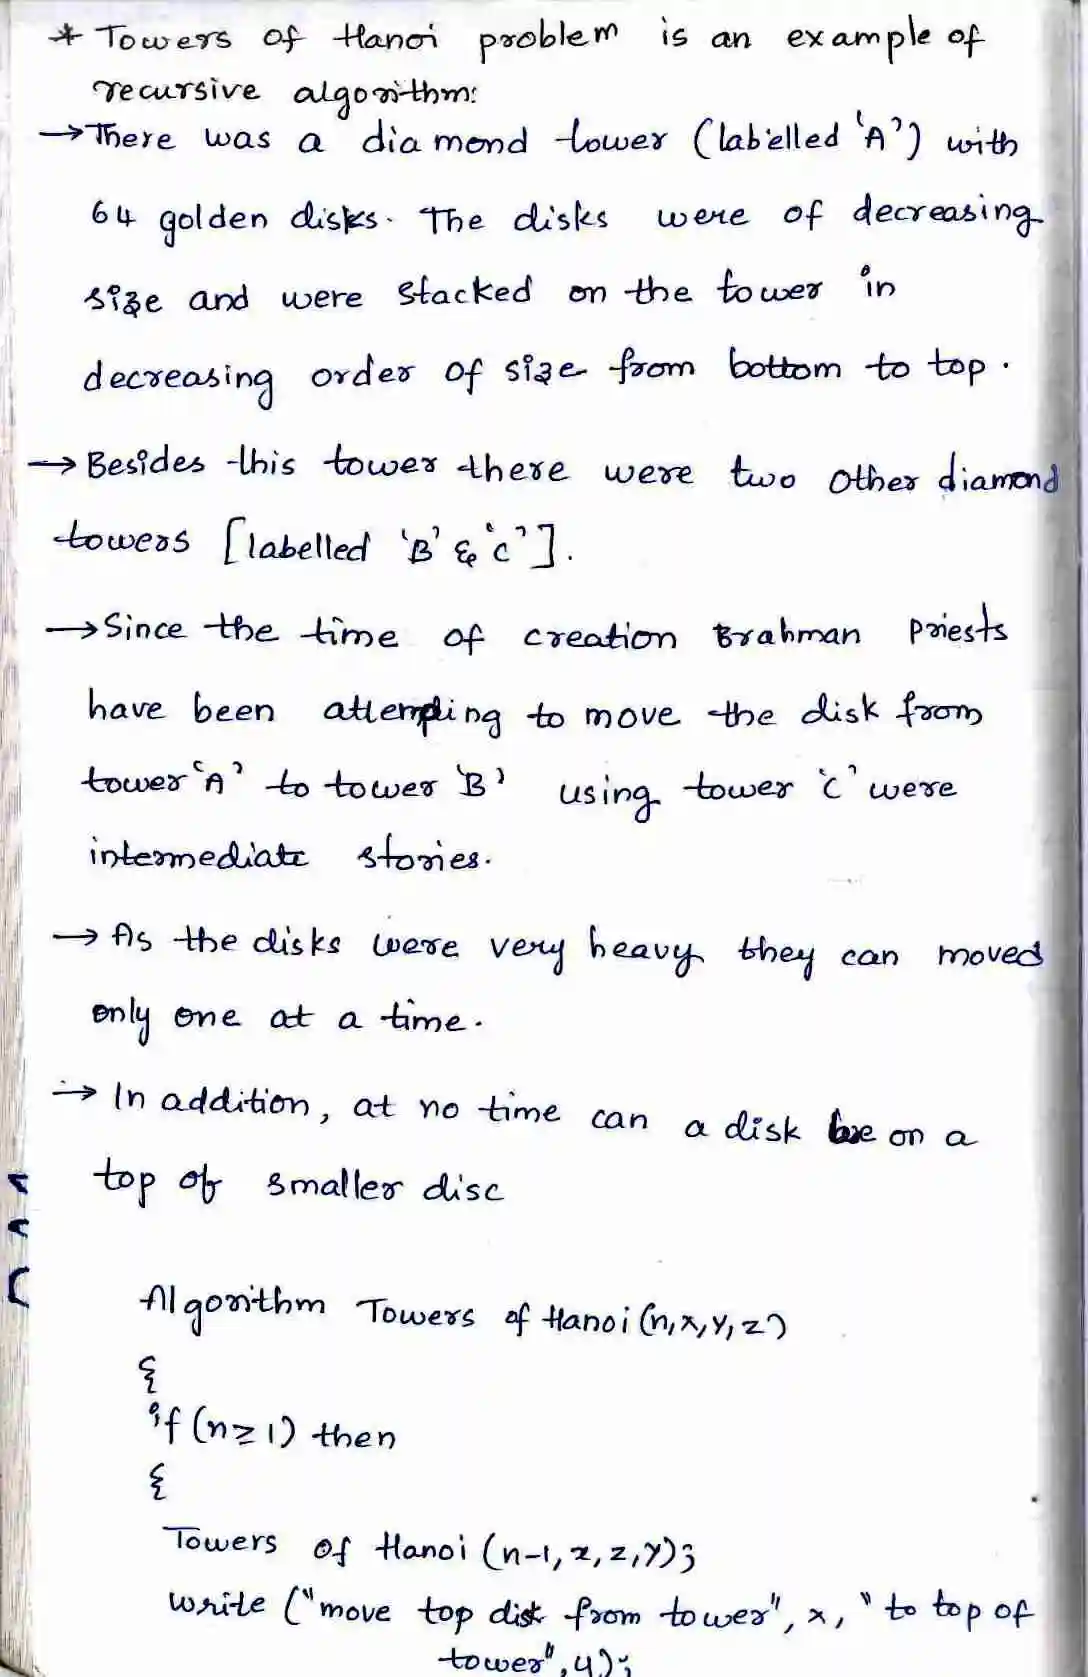 * Towers of Hanoi problem is an example of
recursive algorithm:
→ There was a diamond tower (labelled 'A') with
64 golden disks. The disks were of decreasing
size and were stacked on the tower in
decreasing order of size from bottom to top.
→ Besides this tower there were two other diamond
towers [labelled 'B' & 'C'].
→ Since the time of creation Brahman priests
have been attempting to move the disk from
tower 'A' to tower 'B' using tower 'C' were
intermediate stories.
→ As the disks were very heavy they can moved
only one at a time.
→ In addition, at no time can a disk be on a
top of smaller disc
Algorithm Towers of Hanoi (n,x,y,z)
{
if (n≥1) then
{
Towers of Hanoi (n-1,x,z,y);
write ("move top disk from tower", x, "to top of
tower", y);